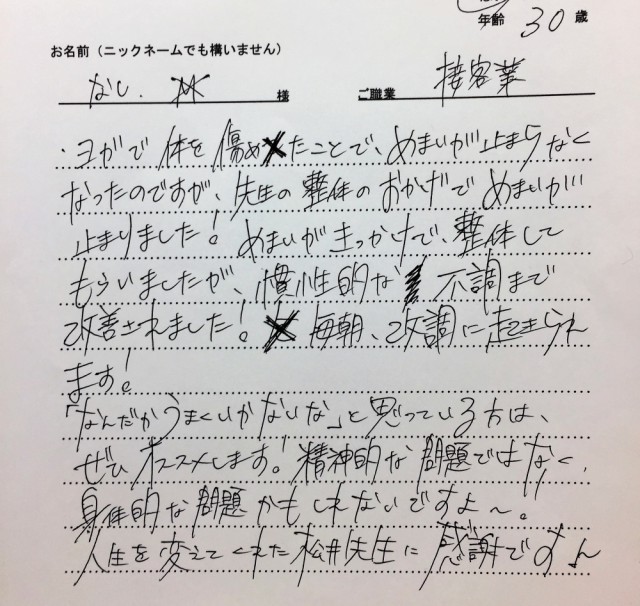 年齢 30 歳
お名前（ニックネームでも構いません）
なし. 様 ご職業 接客業
・ヨガで体を傷めたことで、めまいが止まらなく
なったのですが、先生の整体のおかげでめまいが
止まりました！めまいがきっかけで、整体して
もらいましたが、慣性的な不調まで
改善されました！毎朝、改調に起きられ
ます！
「なんだかうまくいかないな」と思っている方は、
ぜひオススメします！精神的な問題ではなく、
身体的な問題かもしれないですよ〜。
人生を変えてくれた松井先生に感謝です